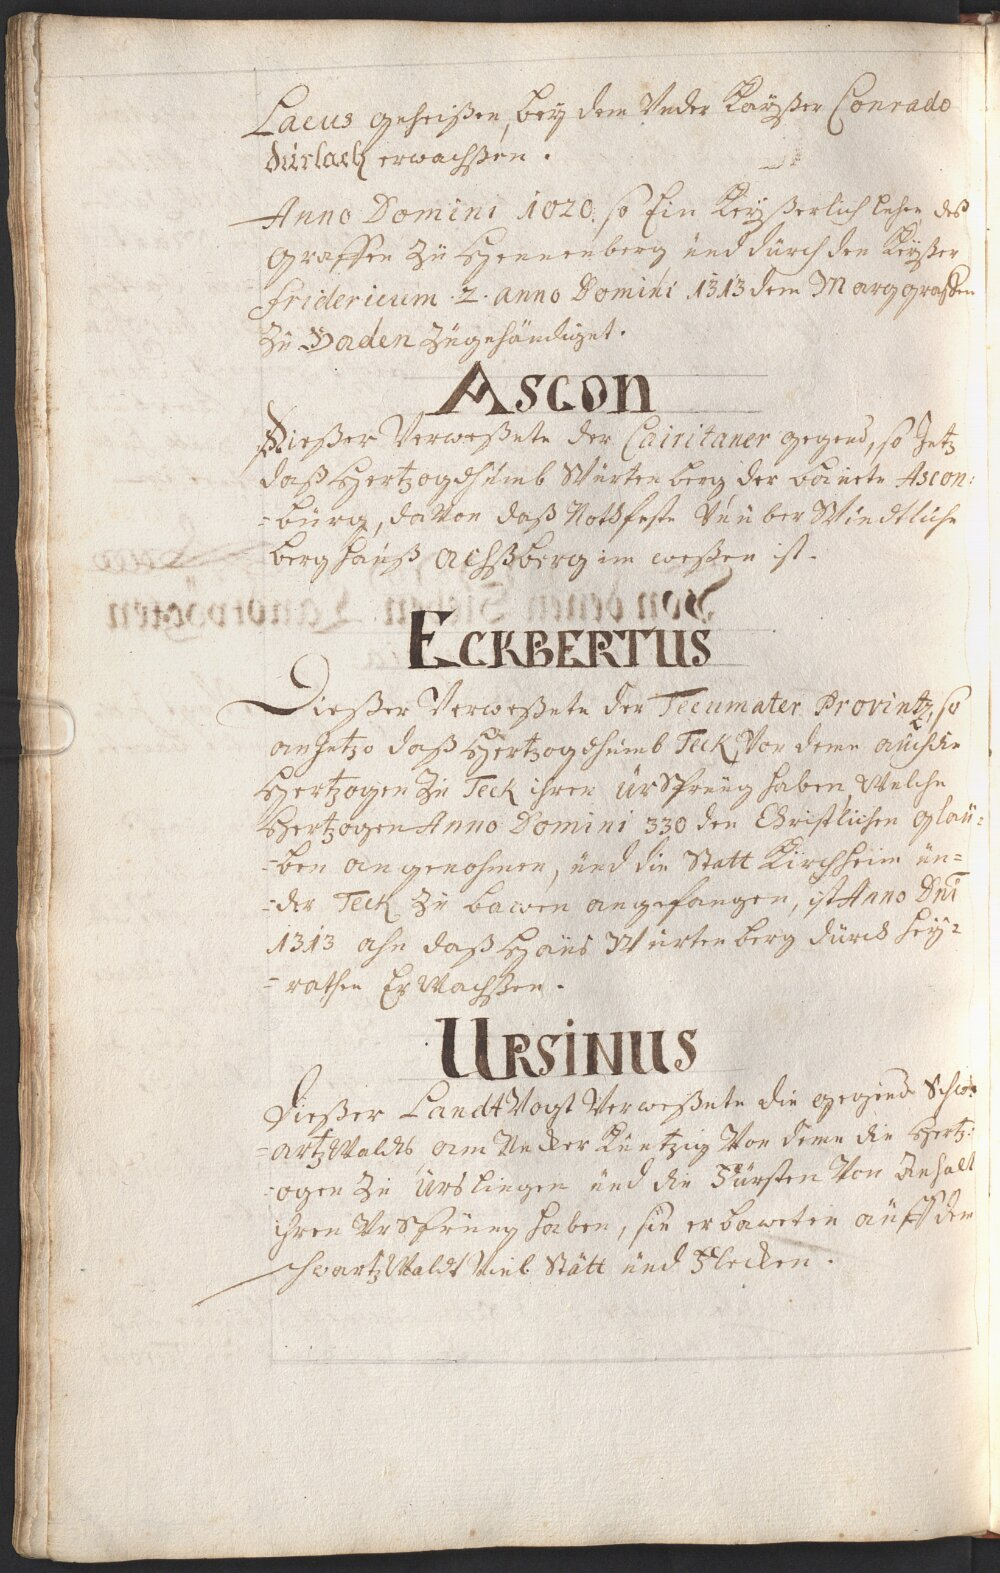 Lacus geheißen, bey dem Under Kayßer Conrado
Durlach erwachßen.
Anno Domini 1020. so Ein Keyßerlich lehen des
Graffen Zu Hennenberg und durch den Keyßer
Fridericum .2. anno Domini 1313 dem Marggraffen
Zu Baden Zugehändiget.
Ascon
Dießer Verweßete der Cairitaner gegend, so Jetz
daß Hertzogthumb Würtenberg der bauete Ascon:
=burg, davon daß Vößfeste
berghauß Achßberg im weßen ist.
Eckbertus
Dießer Verweßete der Tecumater Provintz, so
anjetzo daß Hertzogthumb Teck, Vor deme auch die
Hertzogen Zu Teck ihren Ursprung haben, Welche
Hertzogen Anno Domini 330 den Christlichen glau=
=ben angenohmen, und die Statt Kirchheim un=
=der Teck Zu bawen angefangen, ist Anno Dni
1313 ahn daß Haus Würtenberg durch hey=
=rathen Er Wachßen.
Ursinus
Dießer Landt Vogt Verweßete die gegend Schw=
=artz Walds am Necker Kuntzig Von deme die Hertz:
=ogen Zu Urslingen und die Fürsten Von Anhalt
ihren Ursprung haben, sie erbaweten auff dem
schwartz Waldt Viel Stätt und Flecken.